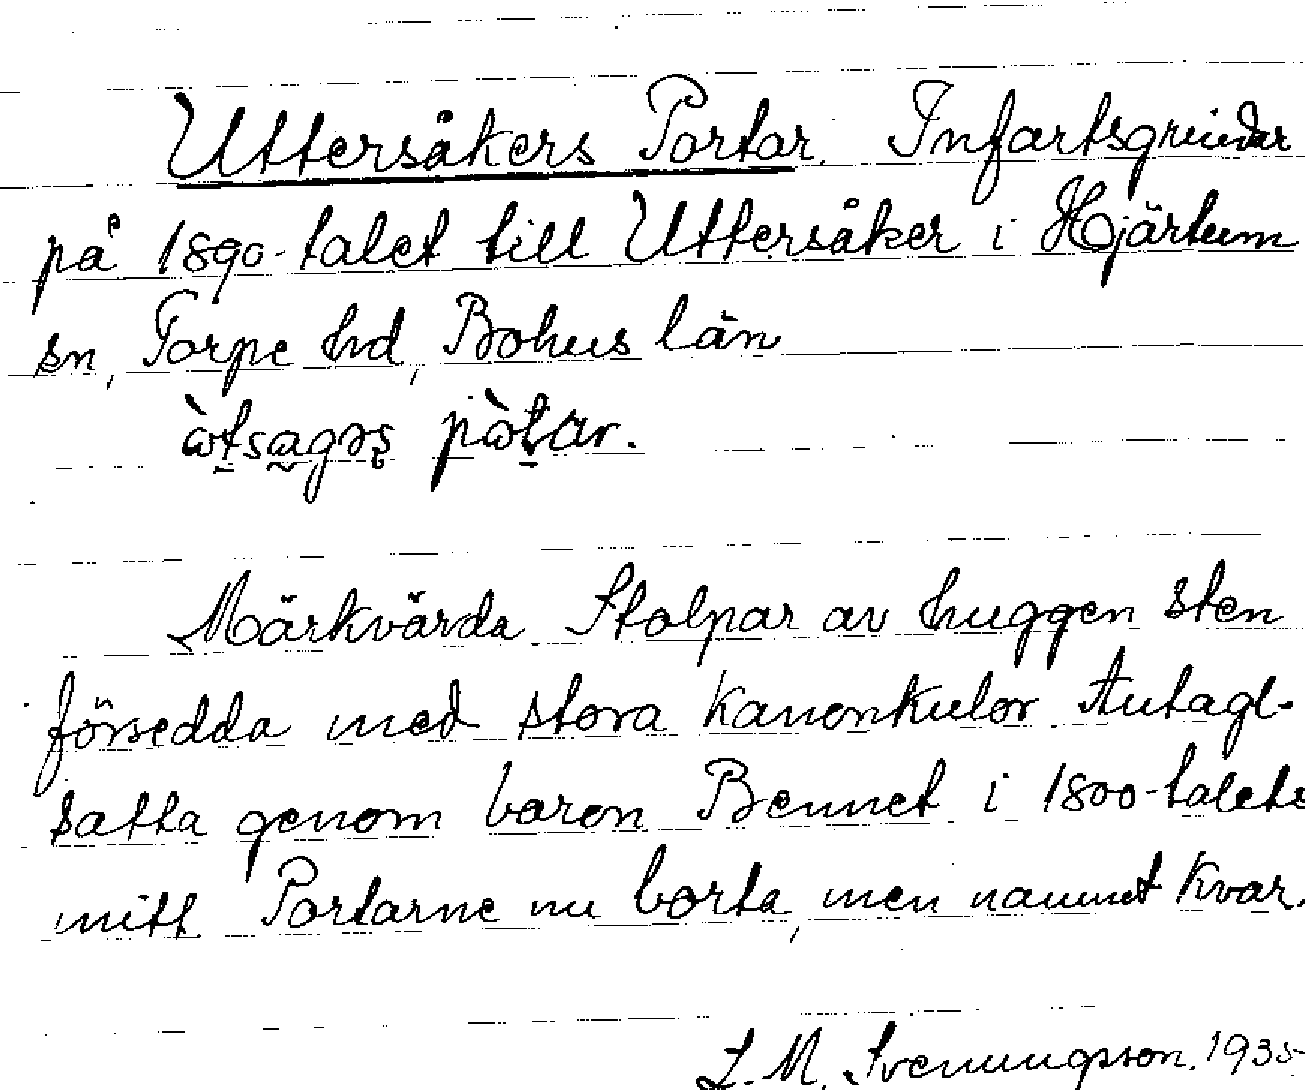 Uttersåkers Portar. Infartsgrindar
på 1890-talet till Uttersåker i Hjärtum
sn, Torpe hd, Bohus län
ὼtsagəs pὼtar.
Märkvärda Stolpar av huggen sten
försedda med stora kanonkulor Antagl.
satta genom baron Bennet i 1800-talets
mitt. Portarne nu borta, men namnet kvar.
L. M. Svenungsson. 1935